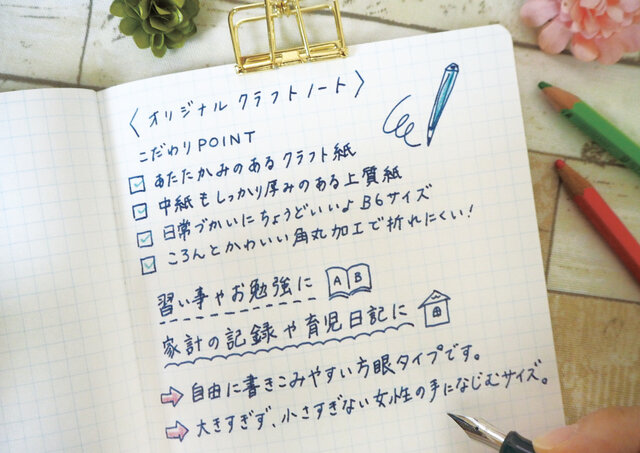 〈オリジナルクラフトノート〉
こだわりPOINT
☑ あたたかみのあるクラフト紙
☑ 中紙もしっかり厚みのある上質紙
☑ 日常づかいにちょうどいいよB6サイズ
☑ ころんとかわいい角丸加工で折れにくい!
習い事やお勉強に
A B
家計の記録や育児日記に
⇨ 自由に書きこみやすい方眼タイプです。
⇨ 大きすぎず、小さすぎない女性の手になじむサイズ。